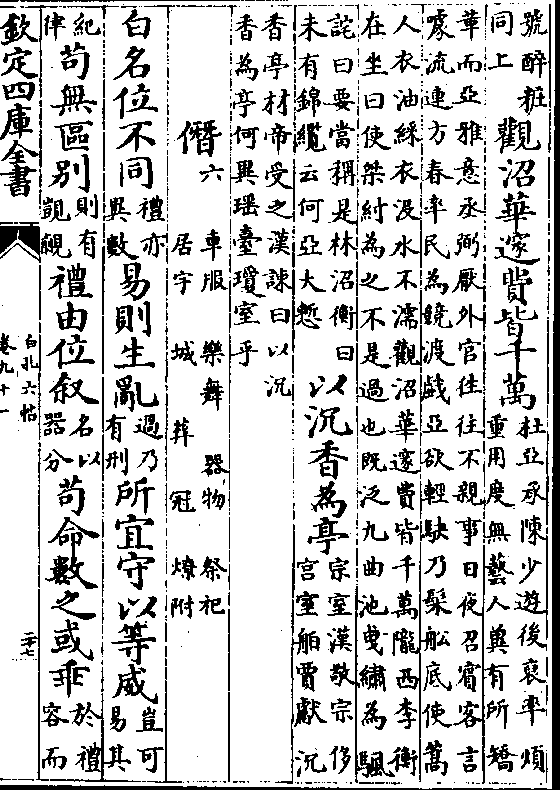 號醉粧
同上
觀沼華邃費皆千萬
杜亞承陳少遊後裒率煩
重用度無藝人兾有所矯
華而亞雅意丞弼厭外官徃徃不親事日夜召賓客言
噱流連方春率民為競渡戯亞欲輕駃乃髹舩底使篙
人衣油綵衣沒水不濡觀沼華邃費皆千萬隴西李衡
在坐曰使桀紂為之不是過也既泛九曲池曵繡為颿
詫曰要當稱是林沼衡曰
未有錦纜云何亞大慙
以沉香為亭
宗室漢敬宗侈
宮室舶賈獻沉
香亭材帝受之漢諌曰以沉
香為亭何異瑶臺瓊室乎
僭六
車服 樂舞 器物 祭祀
居宇 城 葬 冠 燎附
白名位不同
禮亦
異數
易則生亂
過乃
有刑
所宜守以等威
豈可
易其
紀
律
苟無區别
則有
覬覦
禮由位叙
名以
器分
苟命數之或乖
於禮
容而
欽定四庫全書
白孔六帖
卷九十一
二十七